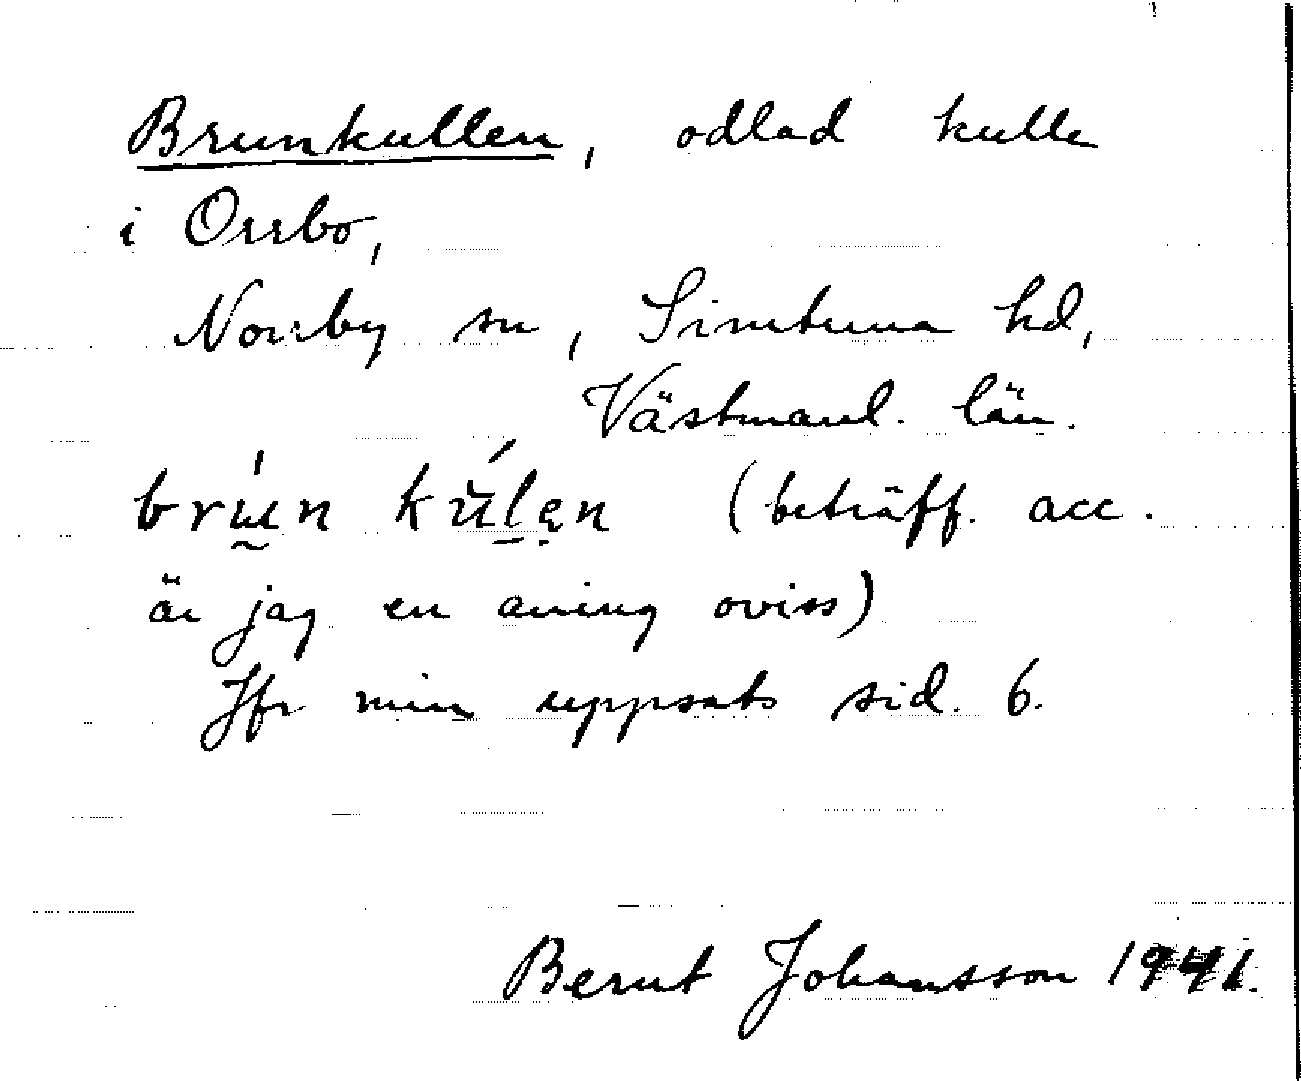 Brunkullen, odlad kulle
i Orrbo,
Norrby sn, Simtuna hd,
Västmanl. län.
brun kulen (beträff. acc.
är jag en aning oviss)
Jfr min uppsats sid. 6.
Bernt Johansson 1941.